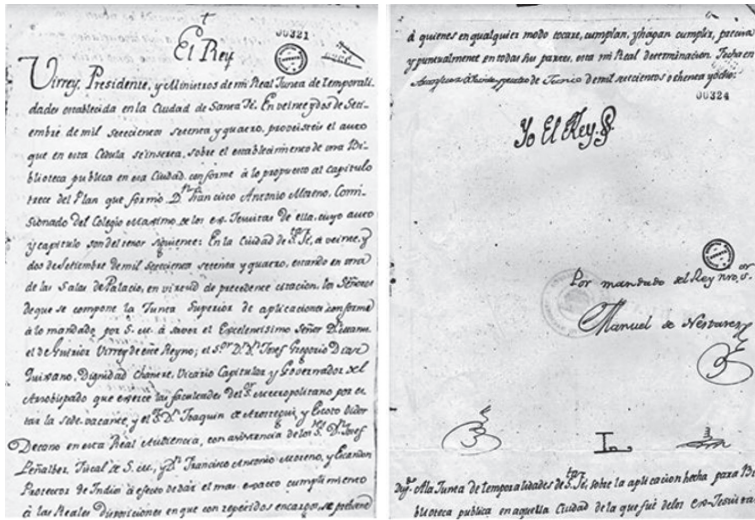 00321
El Rey
Virrey, Presidente, y Ministros de mi Real Junta de temporali-
dades establecida en la Ciudad de Santa Fé. En veinte y dos de Seti-
embre de mil setecientos setenta y quatro, proveisteis el auto
que en esta Cedula se inserta, sobre el establecimiento de una Bi-
blioteca publica en esa Ciudad, conforme à lo propuesto al capitulo
trece del Plan que formó Dn. Francisco Antonio Moreno, Comi-
sionado del Colegio Maximo de los ex-Jesuitas de ella, cuyo auto
y capitulo son del tenor siguiente: En la Ciudad de Sta. Fé, à veinte, y
dos de Setiembre de mil setecientos setenta y quatro, estando en una
de las Salas de Palacio, en virtud de precedente citacion, los Señores
de que se compone la Junta Superior de aplicaciones conforme
à lo mandado por S. M. à saver el Excelentisimo Señor Dn. Manu-
el de Guirior Virrey de este Reyno; el Sor. Dr. Dn. Josef Gregorio Diaz
Quixano, Dignidad Chantre, Vicario Capitular y Governador del
Arzobispado que exerce las facultades del Metropolitano por es-
tar la sede vacante, y el Sr. Dn. Joaquin de Arostegui, y Escoto Oidor
Decano en esta Real Audiencia, con asistencia de los Sres. Dn. Josef
Peñalber, Fiscal de S. M., y Dn. Francisco Antonio Moreno, y Escandon
Protector de Indios à efecto de dàr el mas exacto cumplimiento
à las Reales Disposiciones en que con repetidos encargos, se previene
à quienes en qualquier modo tocare, cumplan, y hagan cumplir, precisa
y puntualmente en todas sus partes, esta mi Real determinacion. Fecha en
Aranjuez à de Junio de mil setecientos ochenta y ocho.
00324
Yo El Rey.
Por mandado del Rey nro. sor.
Manuel de Nestares
Dup. A la Junta de temporalidades de Sta. Fé, sobre la aplicacion hecha para Bi-
blioteca publica en aquella Ciudad de la que fué de los ex-Jesuitas